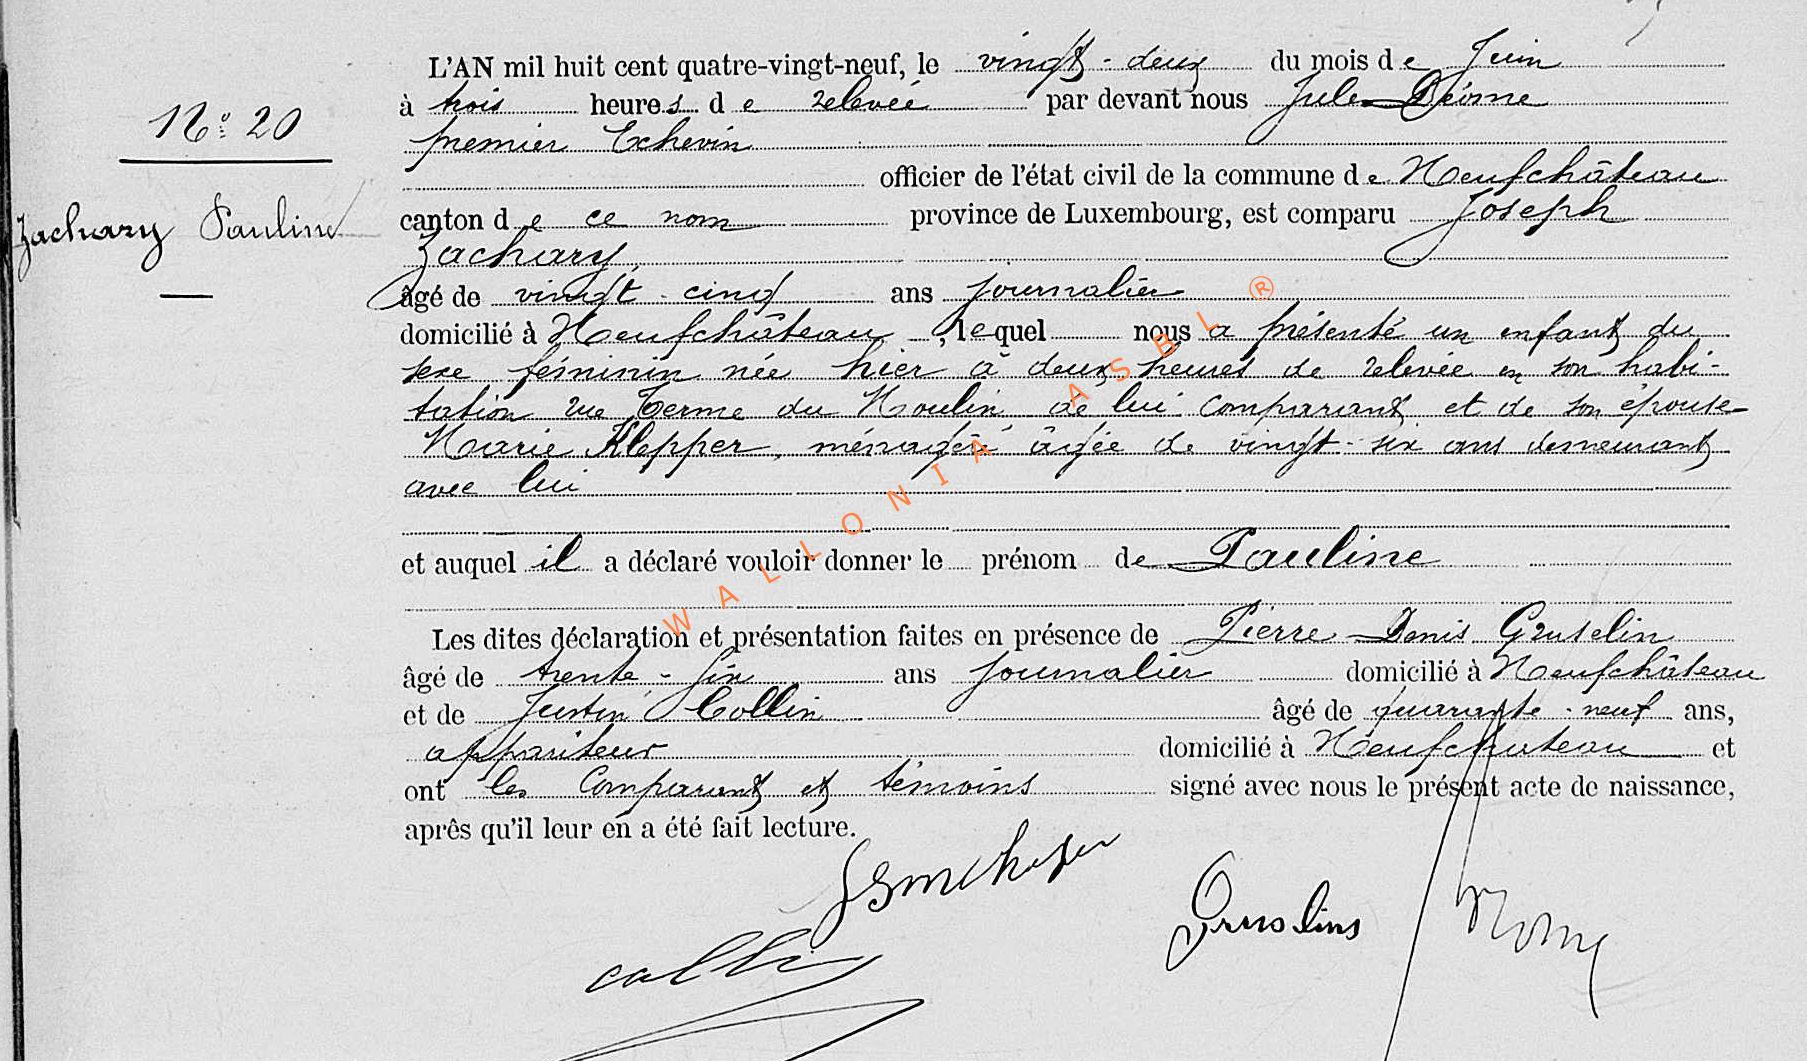 L'AN mil huit cent quatre-vingt-neuf, le vingt-deux du mois de Juin
à trois heures de relevée par devant nous Jules
premier Echevin
N° 20
officier de l'état civil de la commune de Neufchâteau
Zachary Pauline
canton de ce nom province de Luxembourg, est comparu Joseph
Zachary,
âgé de vingt-cinq ans journalier
domicilié à Neufchâteau, lequel nous a présenté un enfant du
sexe féminin née hier à deux heures de relevée en son habi-
tation rue Terme du Moulin de lui comparant et de son épouse
Marie Klepper, ménagère âgée de vingt-six ans demeurant
avec lui
et auquel il a déclaré vouloir donner le prénom de Pauline
Les dites déclaration et présentation faites en présence de Pierre Denis Gruselin
âgé de trente-six ans journalier domicilié à Neufchâteau
et de Justin Collin âgé de quarante-neuf ans,
appariteur domicilié à Neufchateau et
ont les comparant et témoins signé avec nous le présent acte de naissance,
après qu'il leur en a été fait lecture.
WALLONIA ASBL ®